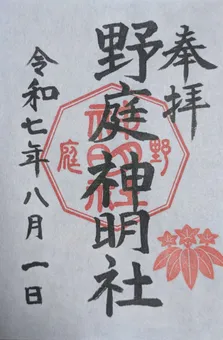 奉拝
野庭神明社
令和七年八月一日
神明社
野庭